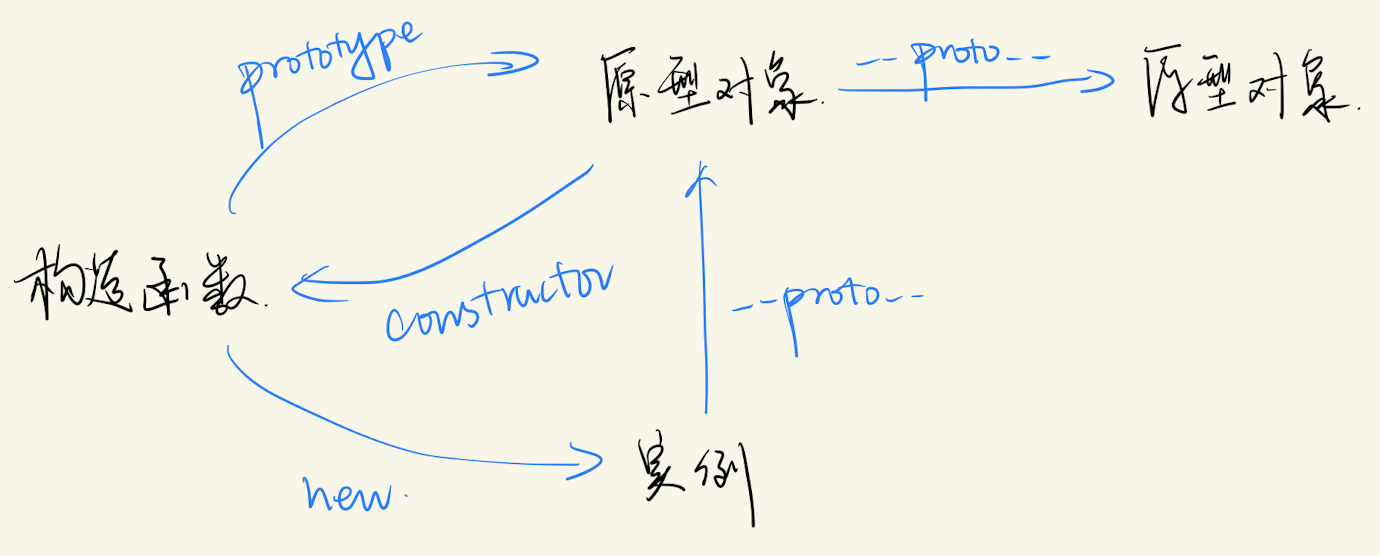 prototype
原型对象.
--proto--
原型对象.
构造函数.
constructor
--proto--
new.
实例